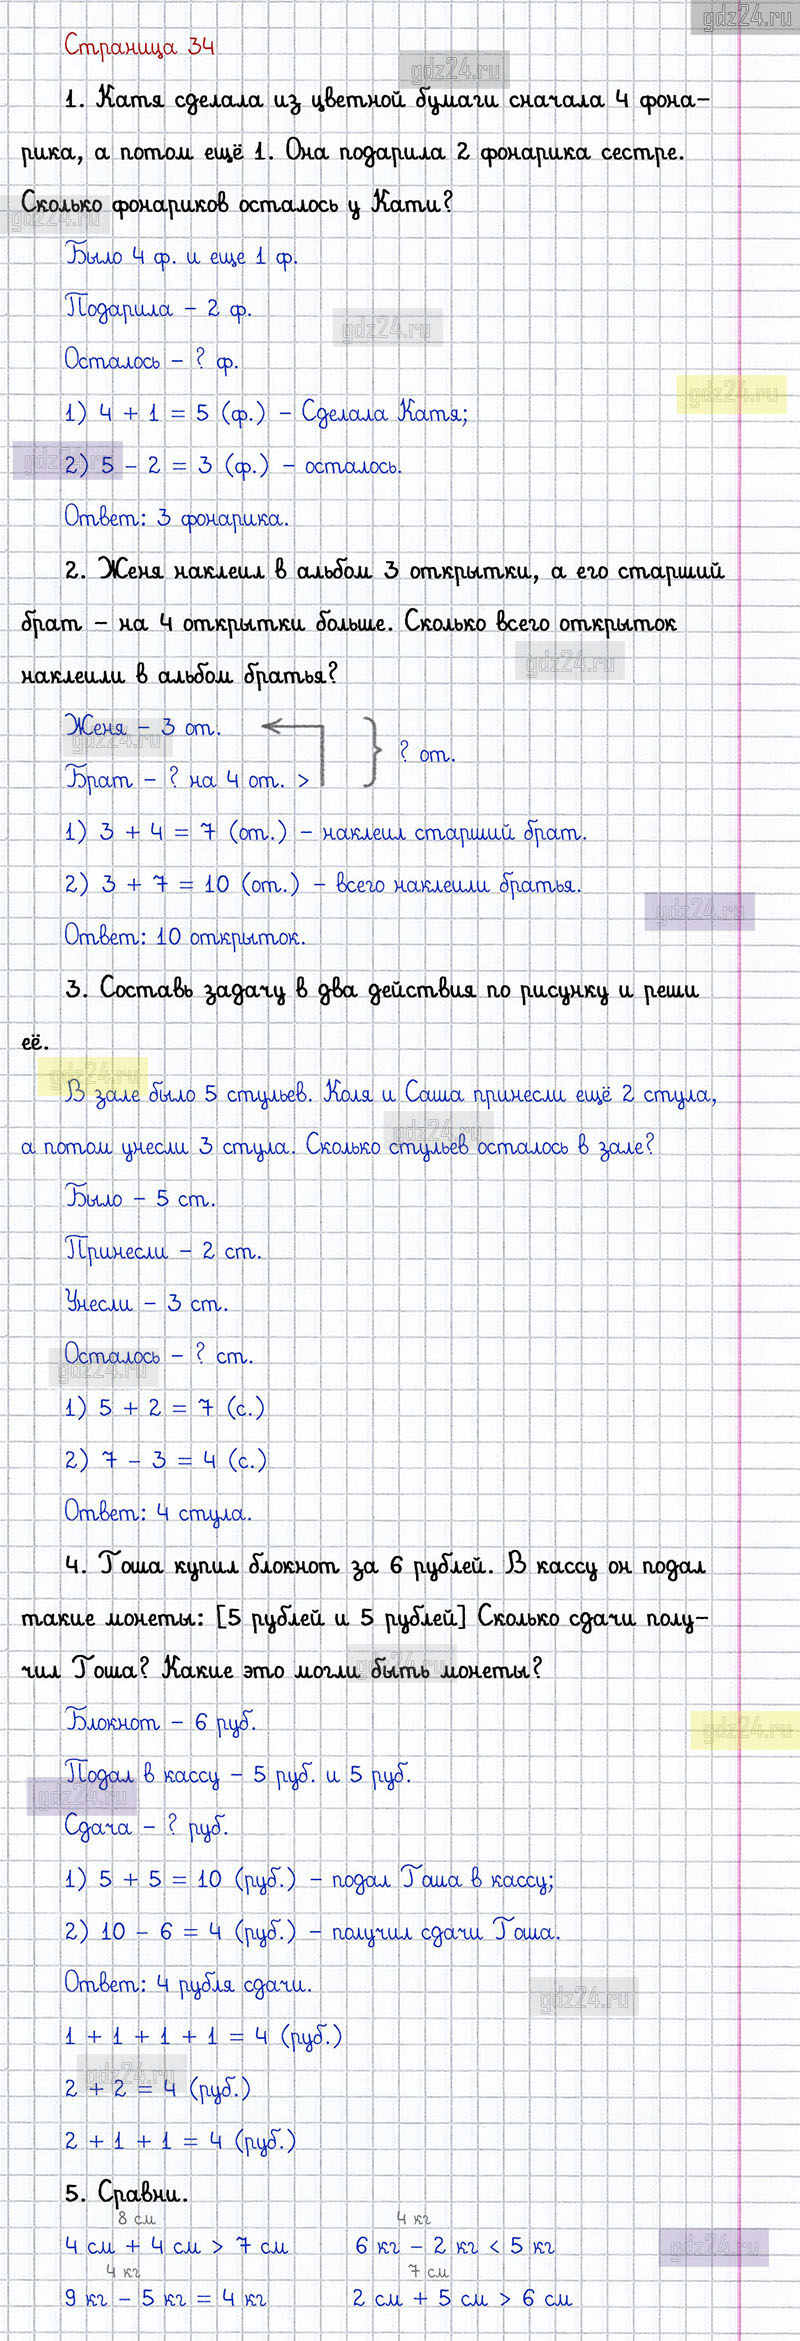 gdz24.ru
Страница 34
gdz24.ru
1. Катя сделала из цветной бумаги сначала 4 фона-
рика, а потом ещё 1. Она подарила 2 фонарика сестре.
Сколько фонариков осталось у Кати?
gdz24.ru
Было 4 ф. и еще 1 ф.
Подарила - 2 ф.
gdz24.ru
Осталось - ? ф.
gdz24.ru
1) 4 + 1 = 5 (ф.) - Сделала Катя;
2) 5 - 2 = 3 (ф.) - осталось.
gdz24.ru
Ответ: 3 фонарика.
2. Женя наклеил в альбом 3 открытки, а его старший
брат - на 4 открытки больше. Сколько всего открыток
gdz24.ru
наклеили в альбом братья?
Женя - 3 от.
gdz24.ru
? от.
Брат - ? на 4 от. >
1) 3 + 4 = 7 (от.) - наклеил старший брат.
2) 3 + 7 = 10 (от.) - всего наклеили братья.
gdz24.ru
Ответ: 10 открыток.
3. Составь задачу в два действия по рисунку и реши
её.
gdz24.ru
В зале было 5 стульев. Коля и Саша принесли ещё 2 стула,
gdz24.ru
а потом унесли 3 стула. Сколько стульев осталось в зале?
Было - 5 ст.
Принесли - 2 ст.
Унесли - 3 ст.
Осталось - ? ст.
gdz24.ru
1) 5 + 2 = 7 (с.)
2) 7 - 3 = 4 (с.)
Ответ: 4 стула.
4. Гоша купил блокнот за 6 рублей. В кассу он подал
такие монеты: [5 рублей и 5 рублей] Сколько сдачи полу-
чил Гоша? Какие это могли быть монеты?
gdz24.ru
Блокнот - 6 руб.
gdz24.ru
Подал в кассу - 5 руб. и 5 руб.
gdz24.ru
Сдача - ? руб.
1) 5 + 5 = 10 (руб.) - подал Гоша в кассу;
2) 10 - 6 = 4 (руб.) - получил сдачи Гоша.
Ответ: 4 рубля сдачи.
gdz24.ru
1 + 1 + 1 + 1 = 4 (руб.)
gdz24.ru
2 + 2 = 4 (руб.)
2 + 1 + 1 = 4 (руб.)
5. Сравни.
8 см 4 кг
4 см + 4 см > 7 см 6 кг - 2 кг < 5 кг
gdz24.ru
4 кг 7 см
9 кг - 5 кг = 4 кг 2 см + 5 см > 6 см